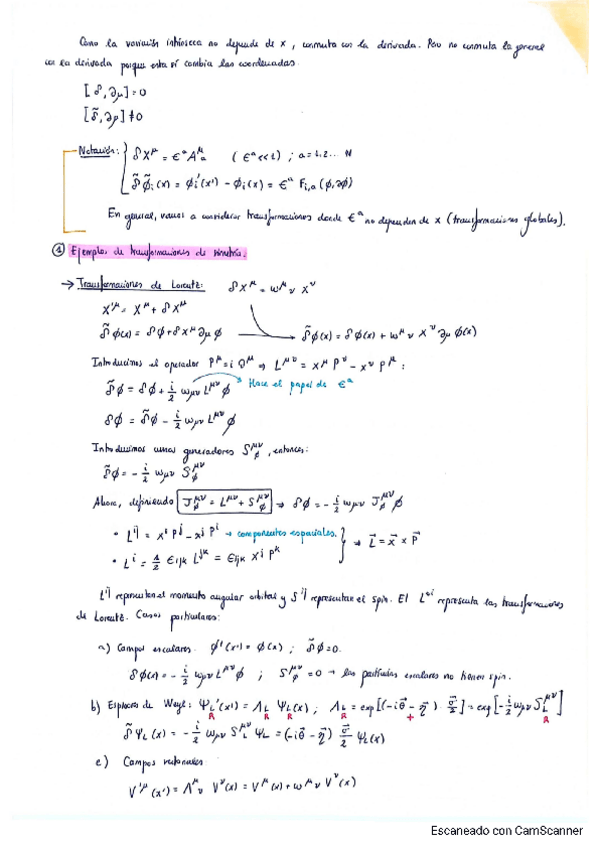 Como la variación intrínseca no depende de x, conmuta con la derivada. Pero no conmuta la general
con la derivada porque esta sí cambia las coordenadas.
[δ, ∂μ] = 0
[δ̃, ∂μ] ≠ 0
Notación: { δX^μ = ε^a A^μ_a (ε^a << 1) ; a = 1, 2 ... N
δ̃φ_i(x) = φ_i'(x') - φ_i(x) = ε^a F_{i,a}(φ, ∂φ)
En general, vamos a considerar transformaciones donde ε^a no dependen de x (transformaciones globales).
① Ejemplos de transformaciones de simetría.
→ Transformaciones de Lorentz: δX^μ = ω^μ_ν X^ν
X'^μ = X^μ + δX^μ
δ̃φ(x) = δφ + δx^μ ∂μ φ → δ̃φ(x) = δφ(x) + ω^μ_ν X^ν ∂μ φ(x)
Introducimos el operador P^μ = i∂^μ ⇒ L^{μν} = x^μ P^ν - x^ν P^μ :
δ̃φ = δφ + i/2 ω_{μν} L^{μν} φ Hace el papel de ε^a
δφ = δ̃φ - i/2 ω_{μν} L^{μν} φ
Introducimos unos generadores S_φ^{μν}, entonces:
δ̃φ = - i/2 ω_{μν} S_φ^{μν}
Ahora, definiendo J_φ^{μν} = L^{μν} + S_φ^{μν} ⇒ δφ = - i/2 ω_{μν} J_φ^{μν} φ
• L^{ij} = x^i P^j - x^j P^i → componentes espaciales.
• L^i = 1/2 ε_{ijk} L^{jk} = ε_{ijk} x^j P^k } ⇒ L⃗ = x⃗ × P⃗
L^{ij} representan el momento angular orbital y S^{ij} representan el spin. El L^{0i} representa las transformaciones
de Lorentz. Casos particulares:
a) Campos escalares. φ'(x') = φ(x) ; δ̃φ = 0.
δφ(x) = - i/2 ω_{μν} L^{μν} φ ; S_φ^{μν} = 0 → las partículas escalares no tienen spin.
b) Espinores de Weyl: Ψ_L'(x') = Λ_L Ψ_L(x) ; Λ_L = exp[(-iθ⃗ - η⃗) · σ⃗/2] = exp[-i/2 ω_{μν} S_L^{μν}]
R R R R + R
δ̃Ψ_L(x) = - i/2 ω_{μν} S_L^{μν} Ψ_L = (-iθ⃗ - η⃗) σ⃗/2 Ψ_L(x)
c) Campos vectoriales:
V'^μ(x') = Λ^μ_ν V^ν(x) = V^μ(x) + ω^μ_ν V^ν(x)
Escaneado con CamScanner